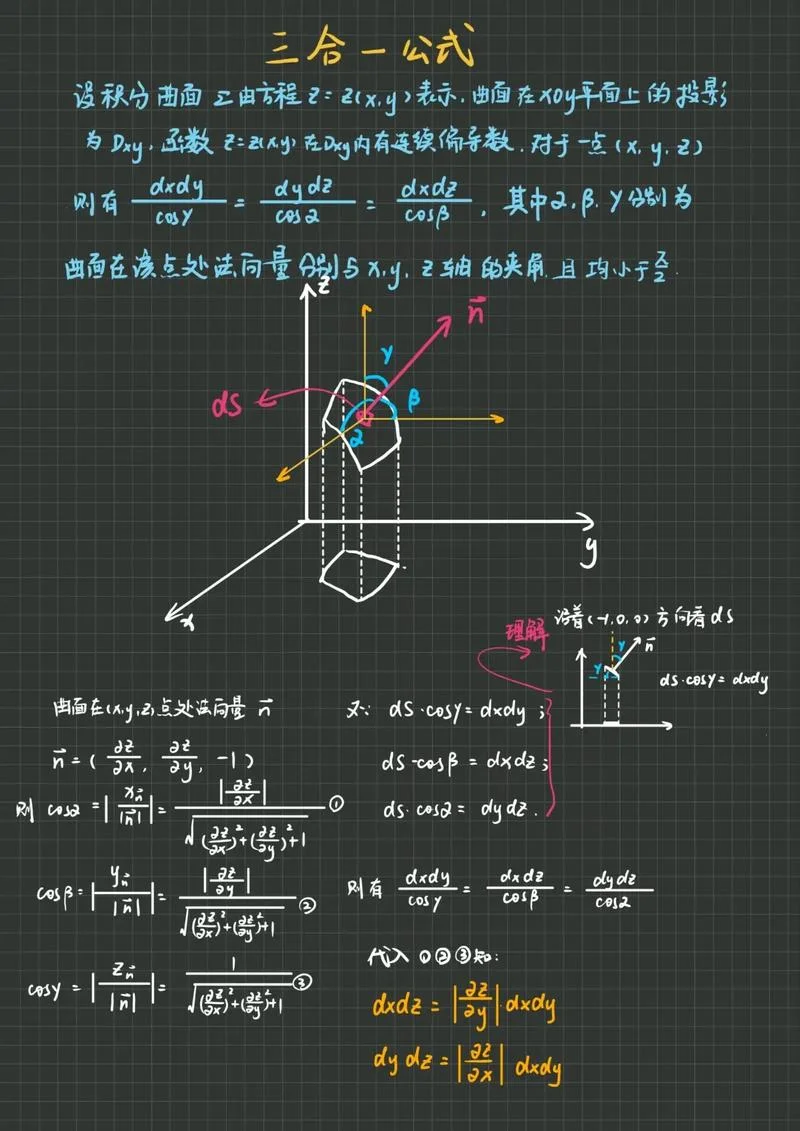 三合一公式
设积分曲面Σ由方程 z = z(x,y)表示，曲面在xoy平面上的投影
为 Dxy，函数 z=z(x,y)在Dxy内有连续偏导数．对于一点(x, y, z)
则有 dxdy/cosγ = dydz/cosα = dxdz/cosβ ，其中α, β, γ分别为
曲面在该点处法向量分别与x,y, z轴的夹角，且均小于π/2．
z
n⃗
γ
β
dS
α
y
x
沿着(-1,0,0)方向看dS
理解
γ
n⃗
γ
dS·cosγ=dxdy
曲面在(x,y,z)点处法向量 n⃗
n⃗ = ( ∂z/∂x, ∂z/∂y, -1 )
则 cosα = |x_n⃗/|n⃗|| = |∂z/∂x| / √((∂z/∂x)²+(∂z/∂y)²+1) ①
cosβ = |y_n⃗/|n⃗|| = |∂z/∂y| / √((∂z/∂x)²+(∂z/∂y)²+1) ②
cosγ = |z_n⃗/|n⃗|| = 1 / √((∂z/∂x)²+(∂z/∂y)²+1) ③
又∵ dS·cosγ=dxdy ;
dS·cosβ = dxdz ;
dS·cosα = dydz .
则有 dxdy/cosγ = dxdz/cosβ = dydz/cosα
代入①②③知:
dxdz = |∂z/∂y|·dxdy
dydz = |∂z/∂x| dxdy